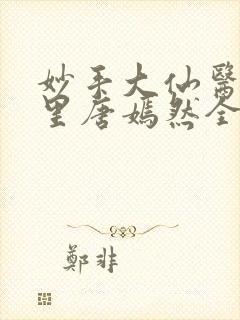 妙手大仙醫
里唐嫣然全
鄭非